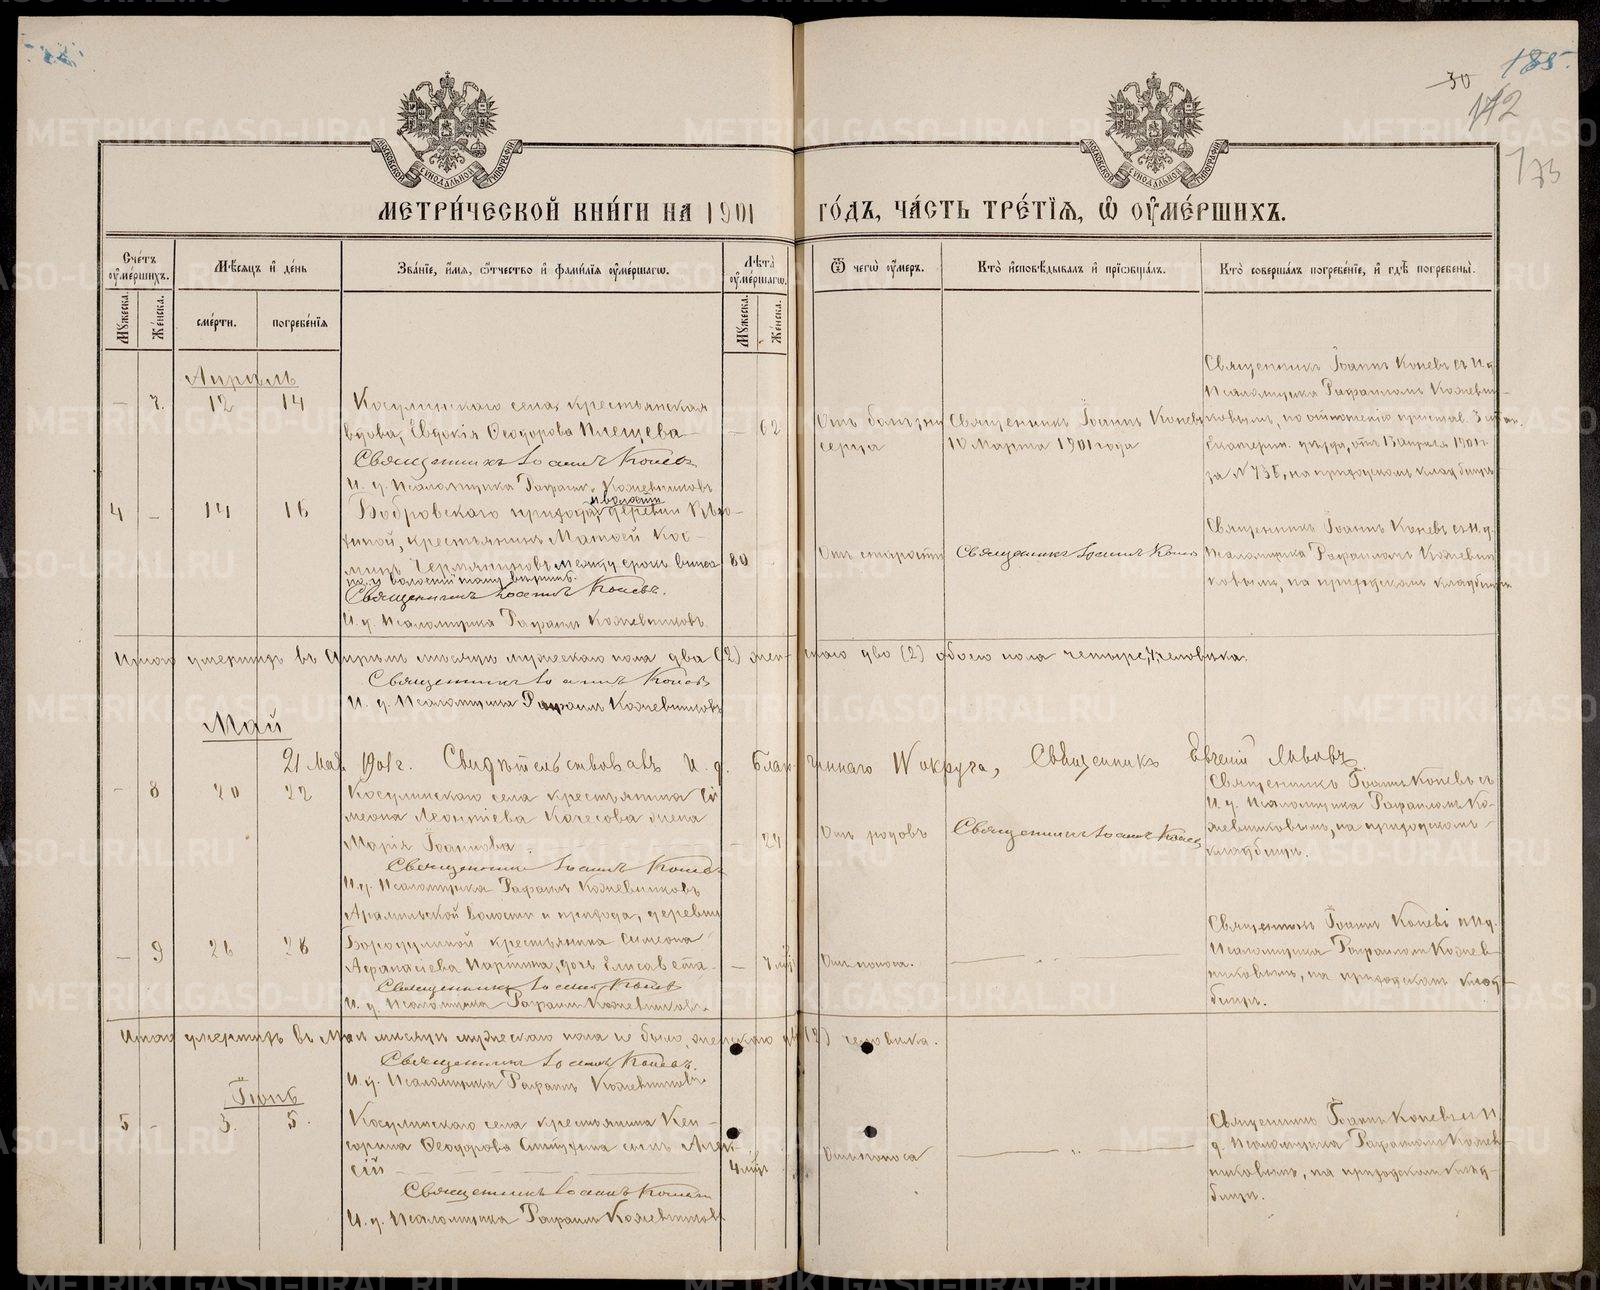 185.
30
172
173
МЕТРИ́ЧЕСКОЙ КНИ́ГИ НА 1901
ГО́ДЪ, ЧА́СТЬ ТРЕ́ТІѦ, Ѽ ОУ҆МЕ́РШИХЪ.
Сче́тъ оу҆ме́ршихъ.
Мѣ́сяцъ и҆ де́нь
Зва́нїе, и҆́мѧ, ѻ҆́тчество и҆ фами́лїѧ оу҆ме́ршагѡ.
Лѣ́та оу҆ме́ршагѡ.
Ѿ чегѡ̀ оу҆́меръ.
Кто̀ и҆сповѣ́дывалъ и҆ прїѡбща́лъ.
Кто̀ соверша́лъ погребе́нїе, и҆ гдѣ̀ погребены̀.
Мꙋ́жеска.
Же́нска.
сме́рти.
погребе́нїѧ
Мꙋ́жеска.
Же́нска.
Апрѣль
- 7. 12 14
Косулинскаго села, крестьянская
вдова, Евдокія Ѳеодорова Плещева
Священникъ Іоаннъ Коневъ
И. д. Псаломщика Рафаилъ Кожевниковъ
- 62
Отъ болѣзни
сердца
Священникъ Іоаннъ Коневъ
10 Марта 1901 года
Священникъ Іоаннъ Коневъ съ И. д.
Псаломщика Рафаиломъ Кожевни-
ковымъ, по отношенію пристава 3 стан.
Екатерин. уѣзда, отъ 13 апрѣля 1901 г.
за № 738, на приходскомъ кладбищѣ
4 - 14 16
Бобровскаго прихода, и волости деревни
крестьянинъ Матѳей Кос-
минъ
Священникъ Іоаннъ Коневъ.
И. д. Псаломщика Рафаилъ Кожевниковъ
80 -
Отъ старости
Священникъ Іоаннъ Коневъ
Священникъ Іоаннъ Коневъ съ И. д.
Псаломщика Рафаиломъ Кожевни-
ковымъ, на приходскомъ кладбищѣ
Итого умершихъ въ Апрѣлѣ мѣсяцѣ мужескаго пола два (2) жен-
скаго два (2) обоего пола четыре, 4, человѣка.
Священникъ Іоаннъ Коневъ
И. д. Псаломщика Рафаилъ Кожевниковъ
Май
21 Мая 1901 г. Свидѣтельствовалъ И. д. Благо-
чиннаго округа, Священникъ Евгеній Львовъ
- 8 20 22
Косулинскаго села крестьянина Си
меона Леонтіева Качесова жена
Марія Іоаннова.
Священникъ Іоаннъ Коневъ
И. д. Псаломщика Рафаилъ Кожевниковъ
- 24
Отъ родовъ
Священникъ Іоаннъ Коневъ
Священникъ Іоаннъ Коневъ съ
И. д. Псаломщика Рафаиломъ Ко-
жевниковымъ, на приходскомъ
кладбищѣ.
- 9 26 28
Арамильской волости и прихода, деревни
Бородулиной крестьянина Симеона
Аѳанасіева дочь Елисавета
Священникъ Іоаннъ Коневъ
И. д. Псаломщика Рафаилъ Кожевниковъ.
- 7 мѣс
Отъ поноса.
Священникъ Іоаннъ Коневъ съ И. д.
Псаломщика Рафаиломъ Кожев-
никовымъ, на приходскомъ клад-
бищѣ.
Итого умершихъ въ Маѣ мѣсяцѣ мужескаго пола не было, женскаго два (2) человѣка.
Священникъ Іоаннъ Коневъ.
И. д. Псаломщика Рафаилъ Кожевниковъ
Іюнь
5 - 3. 5.
Косулинскаго села крестьянина Кен-
сорина Ѳеодорова сынъ Алек-
сій
Священникъ Іоаннъ Коневъ
И. д. Псаломщика Рафаилъ Кожевниковъ
4 мѣс
Отъ поноса
Священникъ Іоаннъ Коневъ съ И.
д. Псаломщика Рафаиломъ Кожев-
никовымъ, на приходскомъ клад-
бищѣ.
METRIKI.GASO-URAL.RU